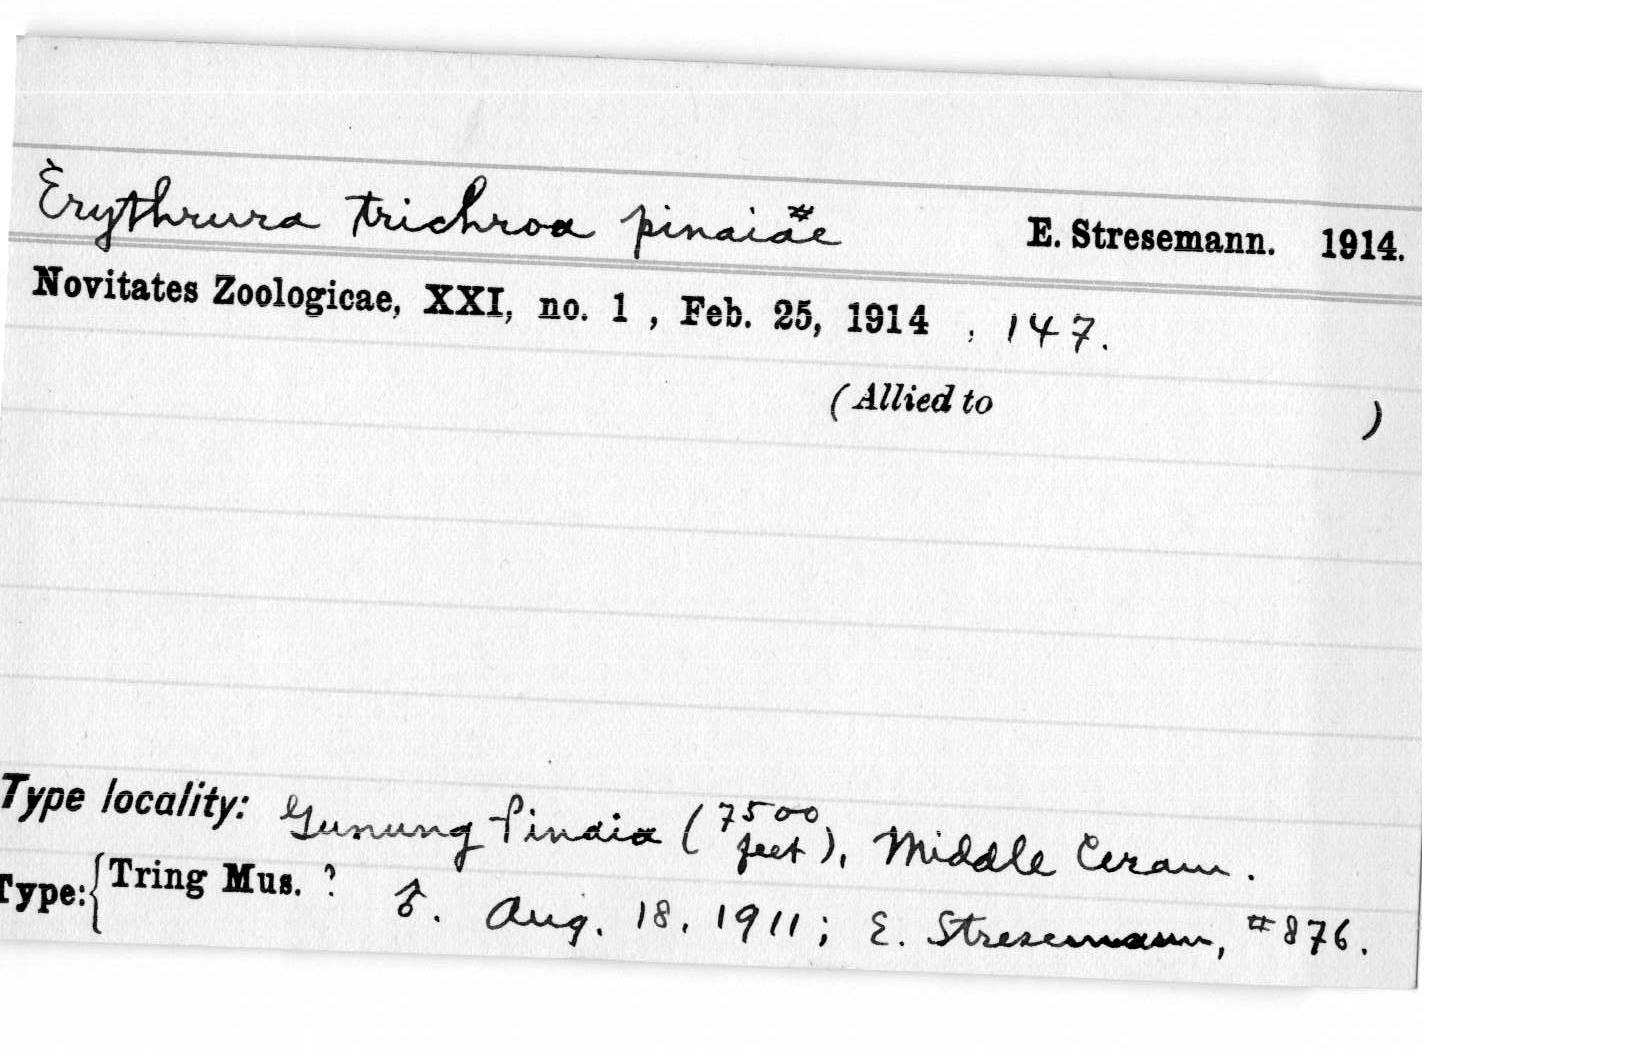 Erythrura trichroa pinaiae # E. Stresemann. 1914.
Novitates Zoologicae, XXI, no. 1 , Feb. 25, 1914 , 147.
(Allied to )
Type locality: Gunung Pinaia (7500 feet), Middle Ceram.
Type: { Tring Mus. ? ♂. Aug. 18, 1911; E. Stresemann, #876.